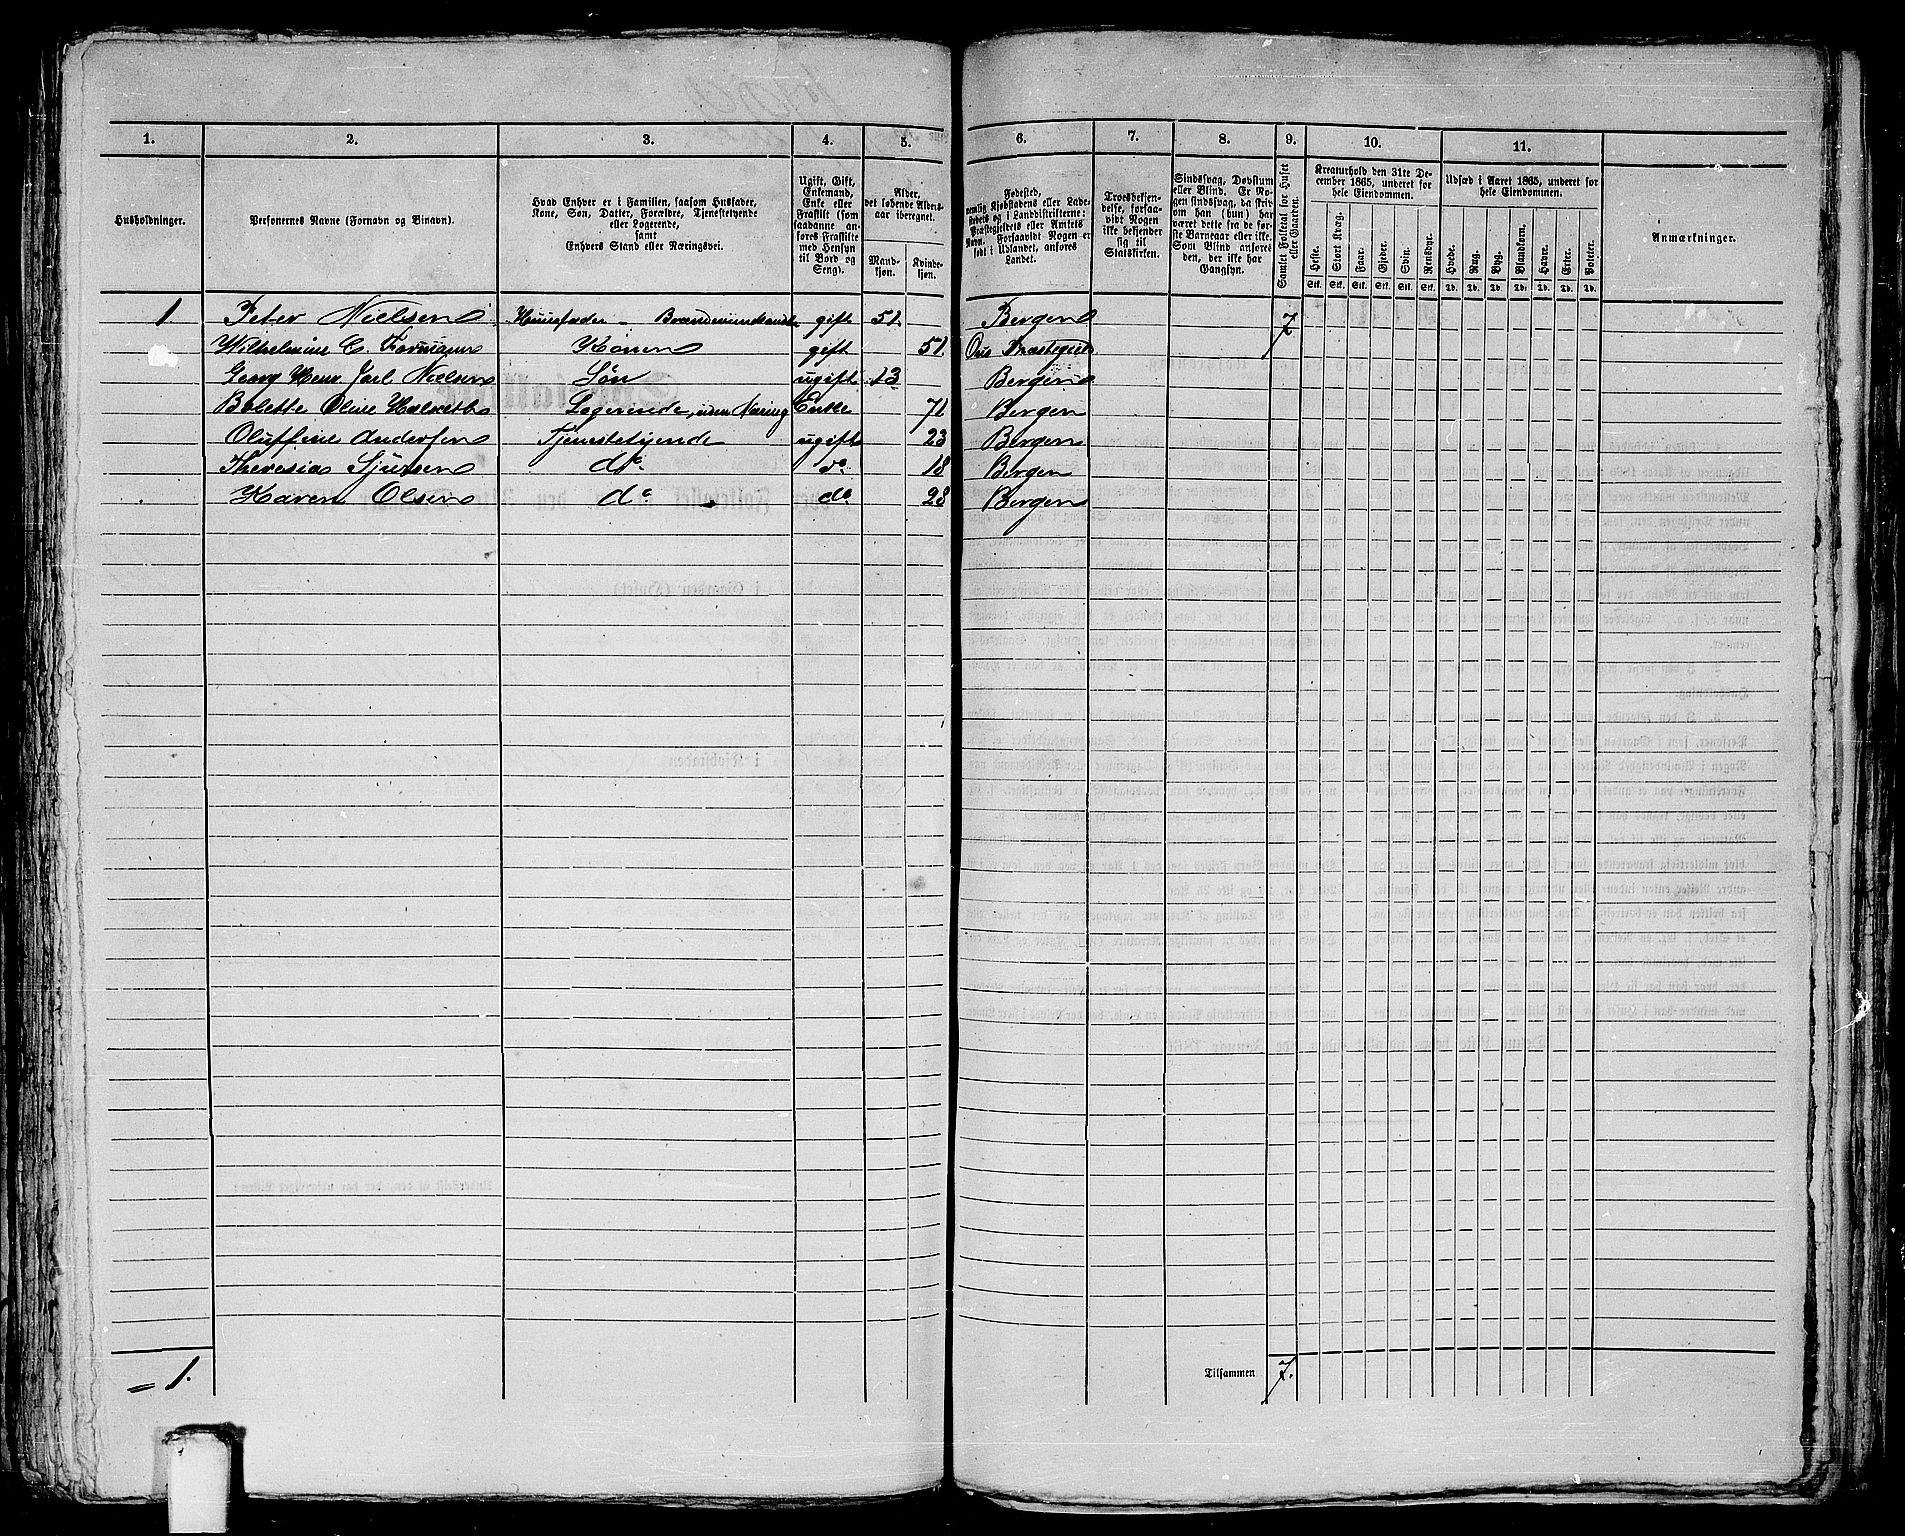 1. 2. 3. 4. 5. 6. 7. 8. 9. 10. 11.
Husholdninger.
Personernes Navne (Fornavn og Binavn).
Hvad Enhver er i Familien, saasom Husfader,
Kone, Søn, Datter, Forældre, Tjenestetyende
eller Logerende,
samt
Enhvers Stand eller Næringsvei.
Ugift, Gift,
Enkemand,
Enke eller
Fraskilt (som
saadanne an-
føres Fraskilte
med Hensyn
til Bord og
Seng).
Alder,
det løbende Alders-
aar iberegnet.
Mand-
kjøn.
Kvinde-
kjøn.
Fødested,
nemlig Kjøbstadens eller Lade-
stedets og i Landdistrikterne:
Præstegjeldets eller Amtets
Navn. Forsaavidt Nogen er
født i Udlandet, anføres
Landet.
Troesbekjen-
delse, forsaa-
vidt Nogen
ikke bekjender
sig til
Statskirken.
Sindssvag, Døvstum
eller Blind. Er No-
gen sindssvag, da skriv
om han (hun) har
været dette fra de
første Barneaar eller ikke.
Som Blind anføres
den, der ikke har
Gangsyn.
Samlet Folketal for Huset
eller Gaarden.
Kreaturhold den 31te De-
cember 1865, underet for
hele Eiendommen.
Heste. Stort Kvæg. Faar. Gjeder. Svin. Rensdyr.
Stk. Stk. Stk. Stk. Stk. Stk.
Udsæd i Aaret 1865, underet for
hele Eiendommen.
Hvede. Rug. Byg. Blandkorn. Havre. Erter. Poteter.
Td. Td. Td. Td. Td. Td. Td.
Anmærkninger.
1 Peter Nielsen Huusfader - gift 51 Bergen 7
Wilhelmine C. Konen gift 51 Præstegield
Georg Henr Jarl Nielsen Søn ugift 13 Bergen
Bolette Oline Logerende, uden Næring Enke 71 Bergen
Oluffine Andersen Tjenestetyende ugift 23 Bergen
Theresia Sjursen do do 18 Bergen
Karen Olsen do do 28 Bergen
= 1.
Tilsammen 7.